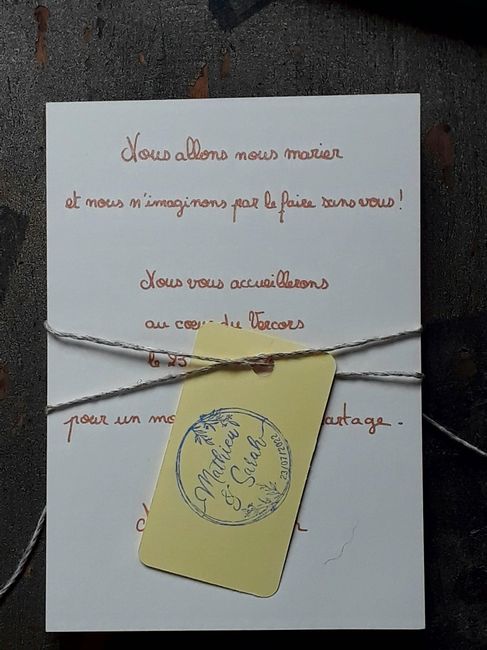 Nous allons nous marier
et nous n'imaginons par le faire sans vous !
Nous vous accueillerons
au coeur du Vercors
le 23
pour un
Mathieu
& Sarah
23/07/2022